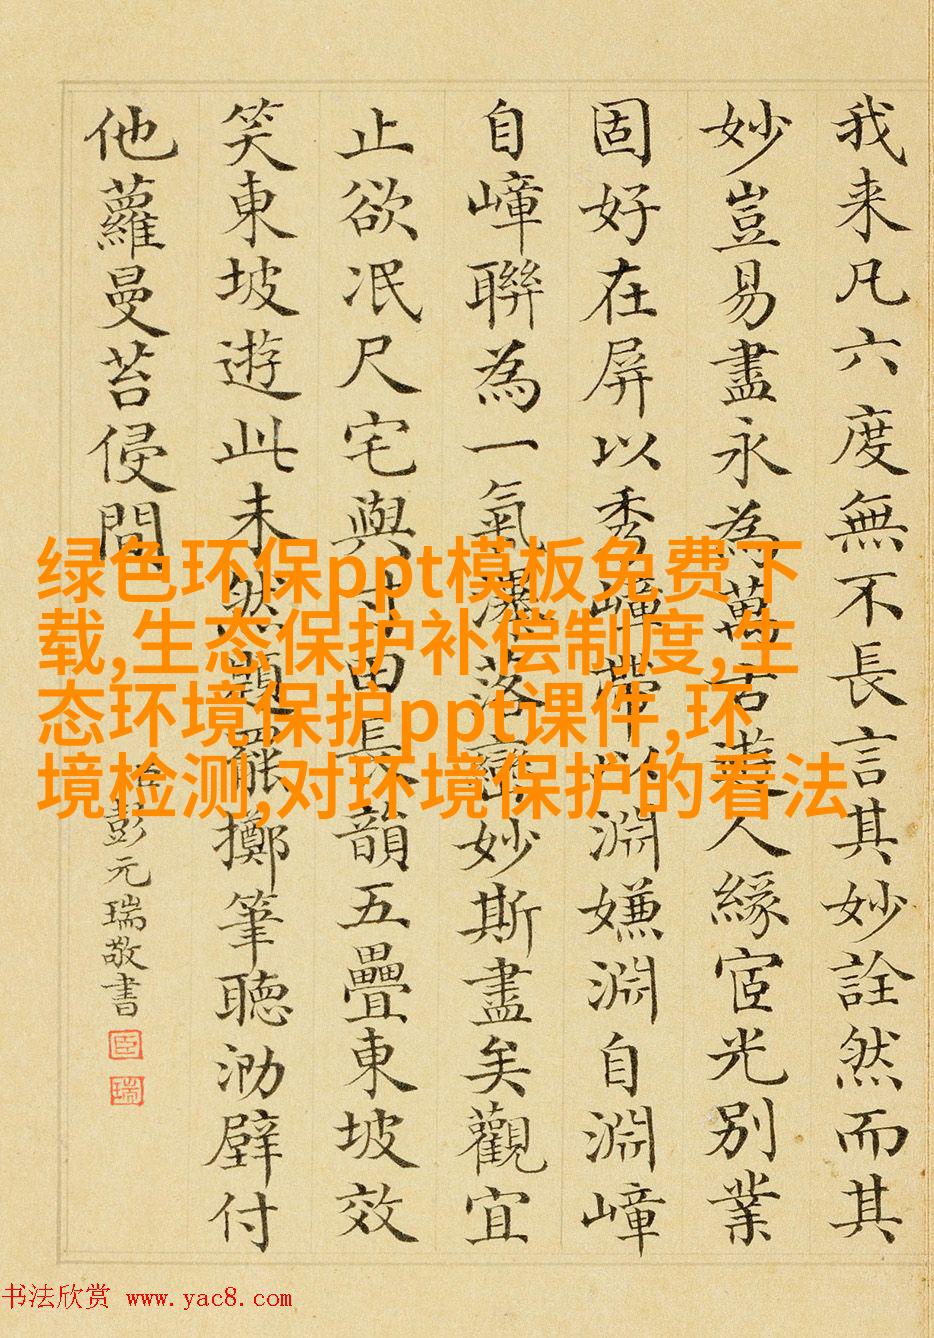 我来凡六度無不長言其妙詮然而其
妙豈易盡永為萬古達人緣宧光別業
固好在屏以秀嶂帶以淵嫌淵自淵嶂
自嶂聯為一氣落妙斯盡矣觀宜
止欲冺尺宅與寸田長韻五疊東坡效
笑東坡遊此未然題罷擲筆聽泐壁付
他蘿曼苔侵間
臣彭元瑞敬書
臣
瑞
绿色环保ppt模板免费下
载,生态保护补偿制度,生
态环境保护ppt课件,环
境检测,对环境保护的看法
书法欣赏 www.yac8.com